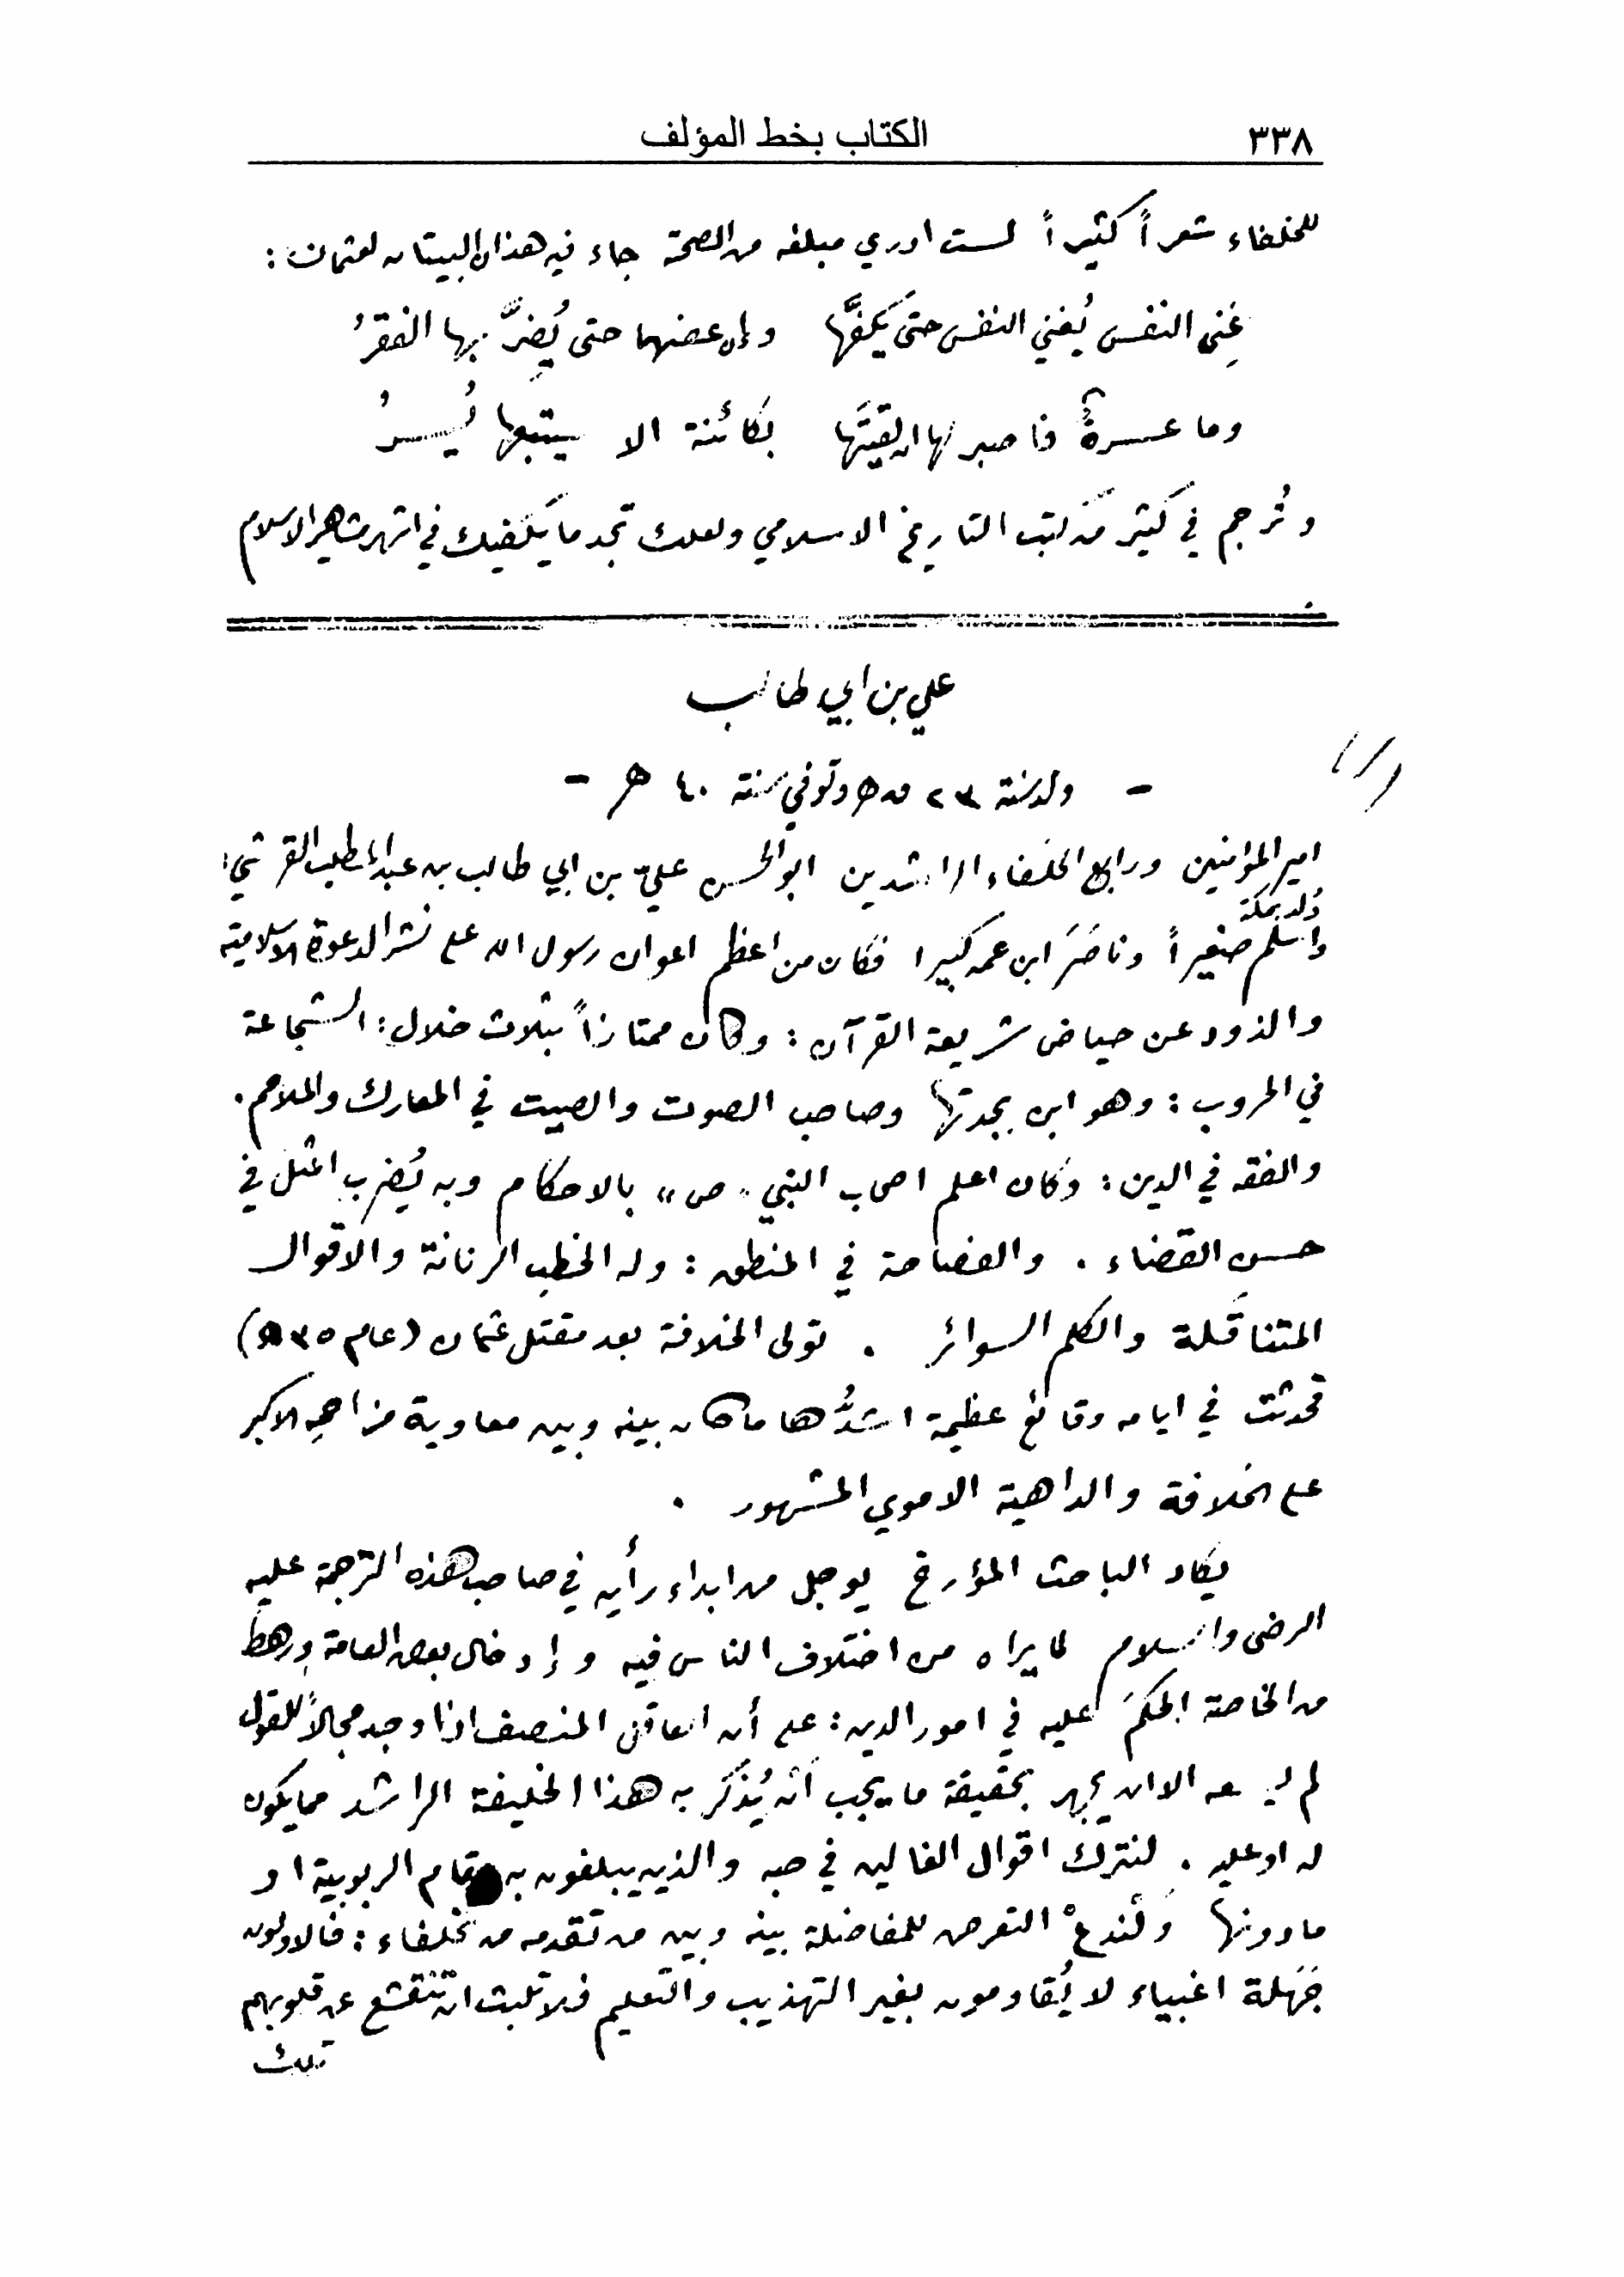 ٣٣٨
الكتاب بخط المؤلف
للخلفاء شعراً كثيراً لست ادري مبلغه من الصحة جاء فيه هذان البيتان لعثمان :
غِنى النفس يُغني النفس حتى يَكفَّها وإن عضها حتى يُضِرَّ بها الفقرُ
وما عسرةٌ فاصبر لها ان لقيتَها بكائنة الا سيتبعها يُسرُ
وتُرجم في كثير من كتب التاريخ الاسلامي ولعلك تجد ما يكفيك في اشهر مشاهير الاسلام
علي بن ابي طالب
- ولد سنة ٢٣ ق ه وتوفي سنة ٤٠ ه -
امير المؤمنين ورابع الخلفاء الراشدين ابو الحسن عليّ بن ابي طالب بن عبد المطلب القرشي :
وُلد بمكة
واسلم صغيراً وناصَرَ ابن عمه كبيرا فكان من اعظم اعوان رسول الله على نشر الدعوة الاسلامية
والذود عن حياض شريعة القرآن : وكان ممتازاً بثلاث خلال : الشجاعة
في الحروب : وهو ابن بجدتها وصاحب الصوت والصيت في المعارك والملاحم .
والفقه في الدين : وكان اعلم اصحاب النبي "ص" بالاحكام وبه يُضرب المثل في
حسن القضاء . والفصاحة في المنطق : وله الخطب الرنانة والاقوال
المتناقَلة والكلم السوائر . تولى الخلافة بعد مقتل عثمان (عام ٣٥ ه)
فحدثت في ايامه وقائع عظيمة اشدُّها ما كان بينه وبين معاوية مزاحمِه الاكبر
على الخلافة والداهية الاموي المشهور .
يكاد الباحث المؤرخ يوجل من ابداء رأيه في صاحب هذه الترجمة عليه
الرضى والسلام لما يراه من اختلاف الناس فيه وإدخال بعض العامة ورهط
من الخاصة الحكمَ عليه في امور الدين : على أن العاقل المنصف اذا وجد مجالاً للقول
لم يسعه الا ان يجهر بحقيقة ما يجب أن يُذكَر به هذا الخليفة الراشد مما يكون
له او عليه . لنترك اقوال الغالين في حبه والذين يبلغون به مقام الربوبية او
ما دونها ولْندعْ التعرض للمفاضلة بينه وبين من تقدمه من الخلفاء : فالاولون
جَهَلة اغبياء لا يُقاومون بغير التهذيب والتعليم فلا تلبث ان تنقشع عن قلوبهم
تلك